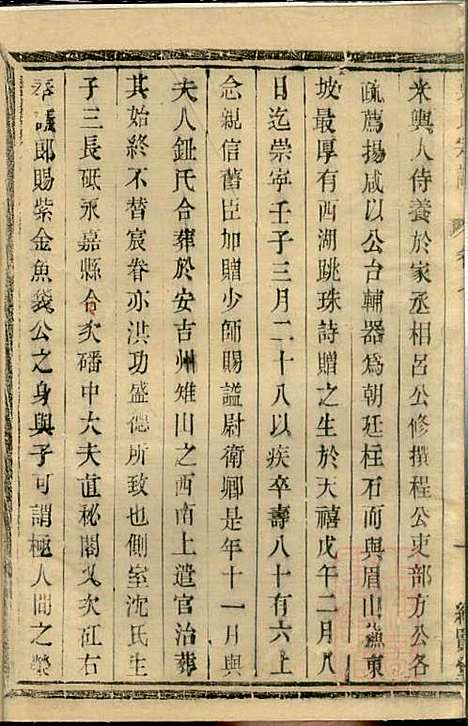 來興人侍養於家丞相呂公修撰程公吏部方公各
疏薦揚咸以公台輔器爲朝廷柱石而與眉山蘇東
坡最厚有西湖跳珠詩贈之生於天禧戊午二月八
日迄崇寧壬子三月二十八以疾卒壽八十有六上
念親信舊臣加贈少師賜謚尉衛卿是年十一月與
夫人鈕氏合葬於安吉州雉山之西南上遣官治葬
其始終不替宸眷亦洪功盛德所致也側室沈氏生
子三長砥永嘉縣令次磻中大夫直秘閣又次矼右
奉議郎賜紫金魚袋公之身與子可謂極人間之榮